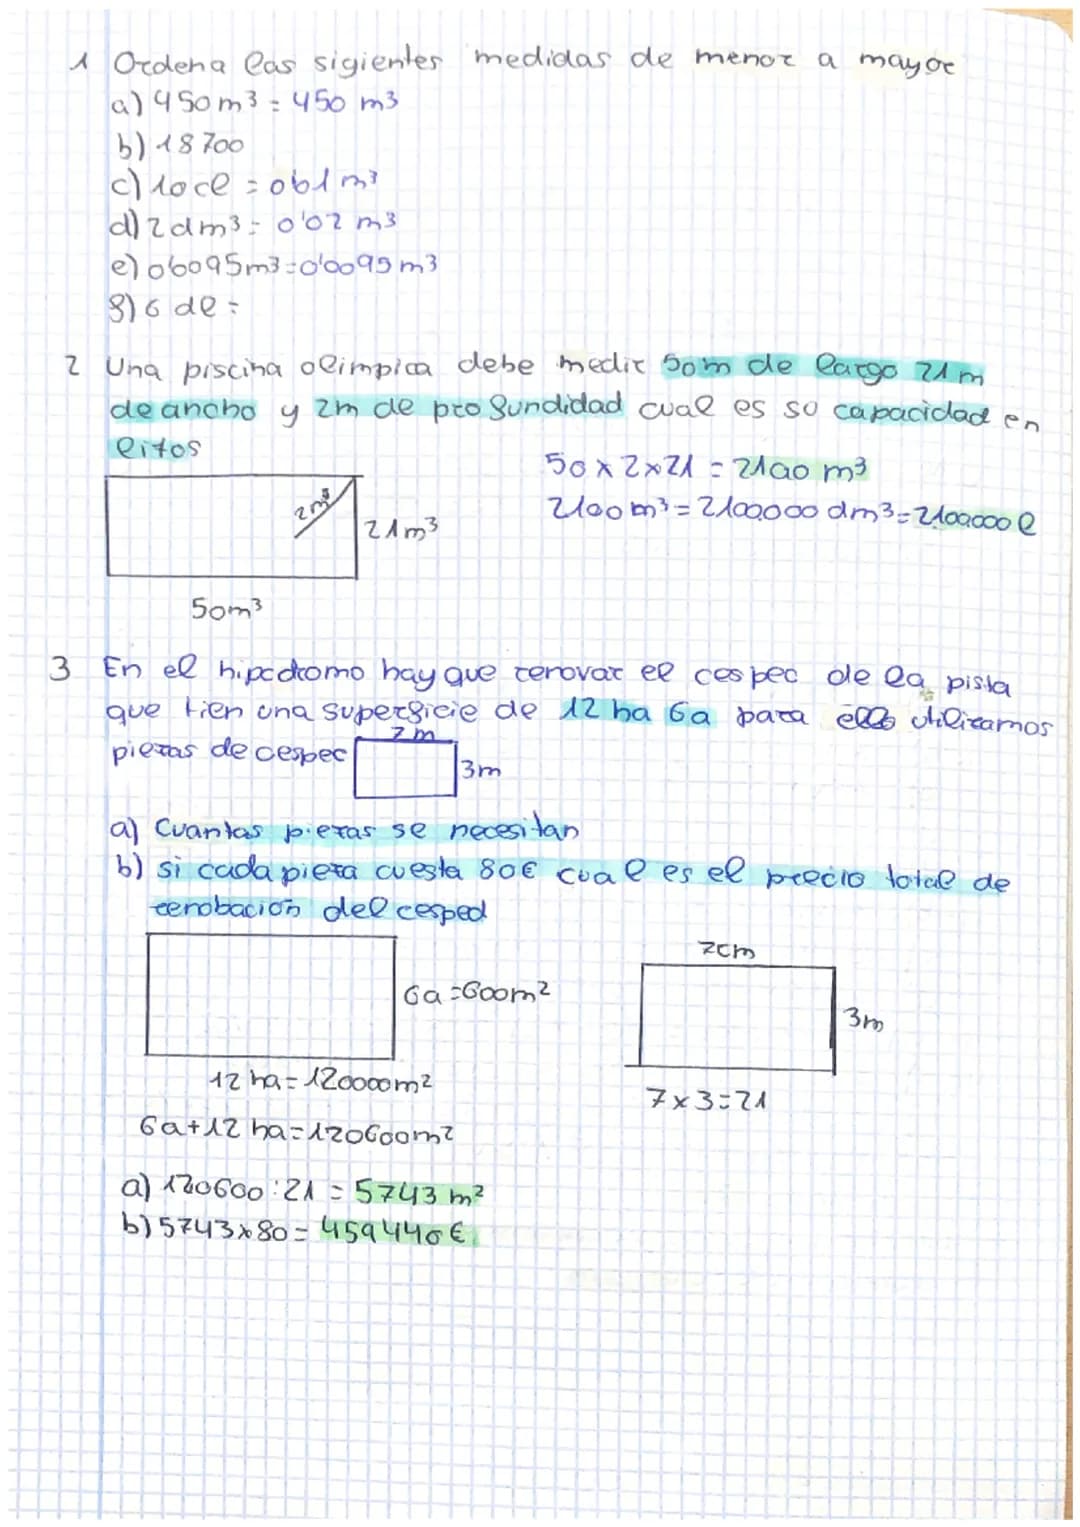 1 Ordena las sigientes medidas de menor a mayor
a) 450 m³ = 450 m3
b) 18700
c) 10cl = 061 m³
d) 2dm³ = 0'02 m3
e) 06095m3 = 0'0095 m3
8) 6 dl =
2 Una piscina olimpica debe medir 50m de largo 21 m
de ancho y 2m de profundidad cual es so capacidad en
litos
50 x 2 x 21 = 2100 m³
2100 m³ = 2100.000 dm3 = 2100.000 l
2m³
21m³
50m³
3 En el hipodromo hay que renovar el cespec de la pista
que tien una superficie de 12 ha 6a para ello utilizamos
piezas de cespec
7 m
3m
a) Cuantas piezas se necesitan
b) si cada pieza cuesta 80€ cual es el precio total de
renobacion del cesped
6a = 600m²
12 ha = 120000m²
7cm
3m
7 x 3 = 21
6a + 12 ha = 120600m²
a) 120600 : 21 = 5743 m²
b) 5743 x 80 = 459440 €